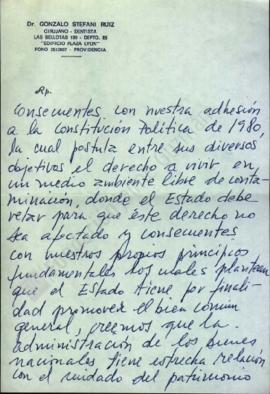 Dr. GONZALO STEFANI RUIZ
CIRUJANO - DENTISTA
LAS BELLOTAS 199 - DEPTO. 85
"EDIFICIO PLAZA LYON"
FONO 2313607 - PROVIDENCIA
Rp.
Consecuentes con nuestra adhesión
a la Constitución Política de 1980,
la cual postula entre sus diversos
objetivos el derecho a vivir en
un medio ambiente libre de conta-
minación, donde el Estado debe
velar para que éste derecho no
sea afectado y consecuentes
con nuestros propios principios
fundamentales los cuales plantean
que el Estado tiene por finali-
dad promover el bien común
general, creemos que la
administración de los bienes
nacionales tiene estrecha relación
con el cuidado del patrimonio